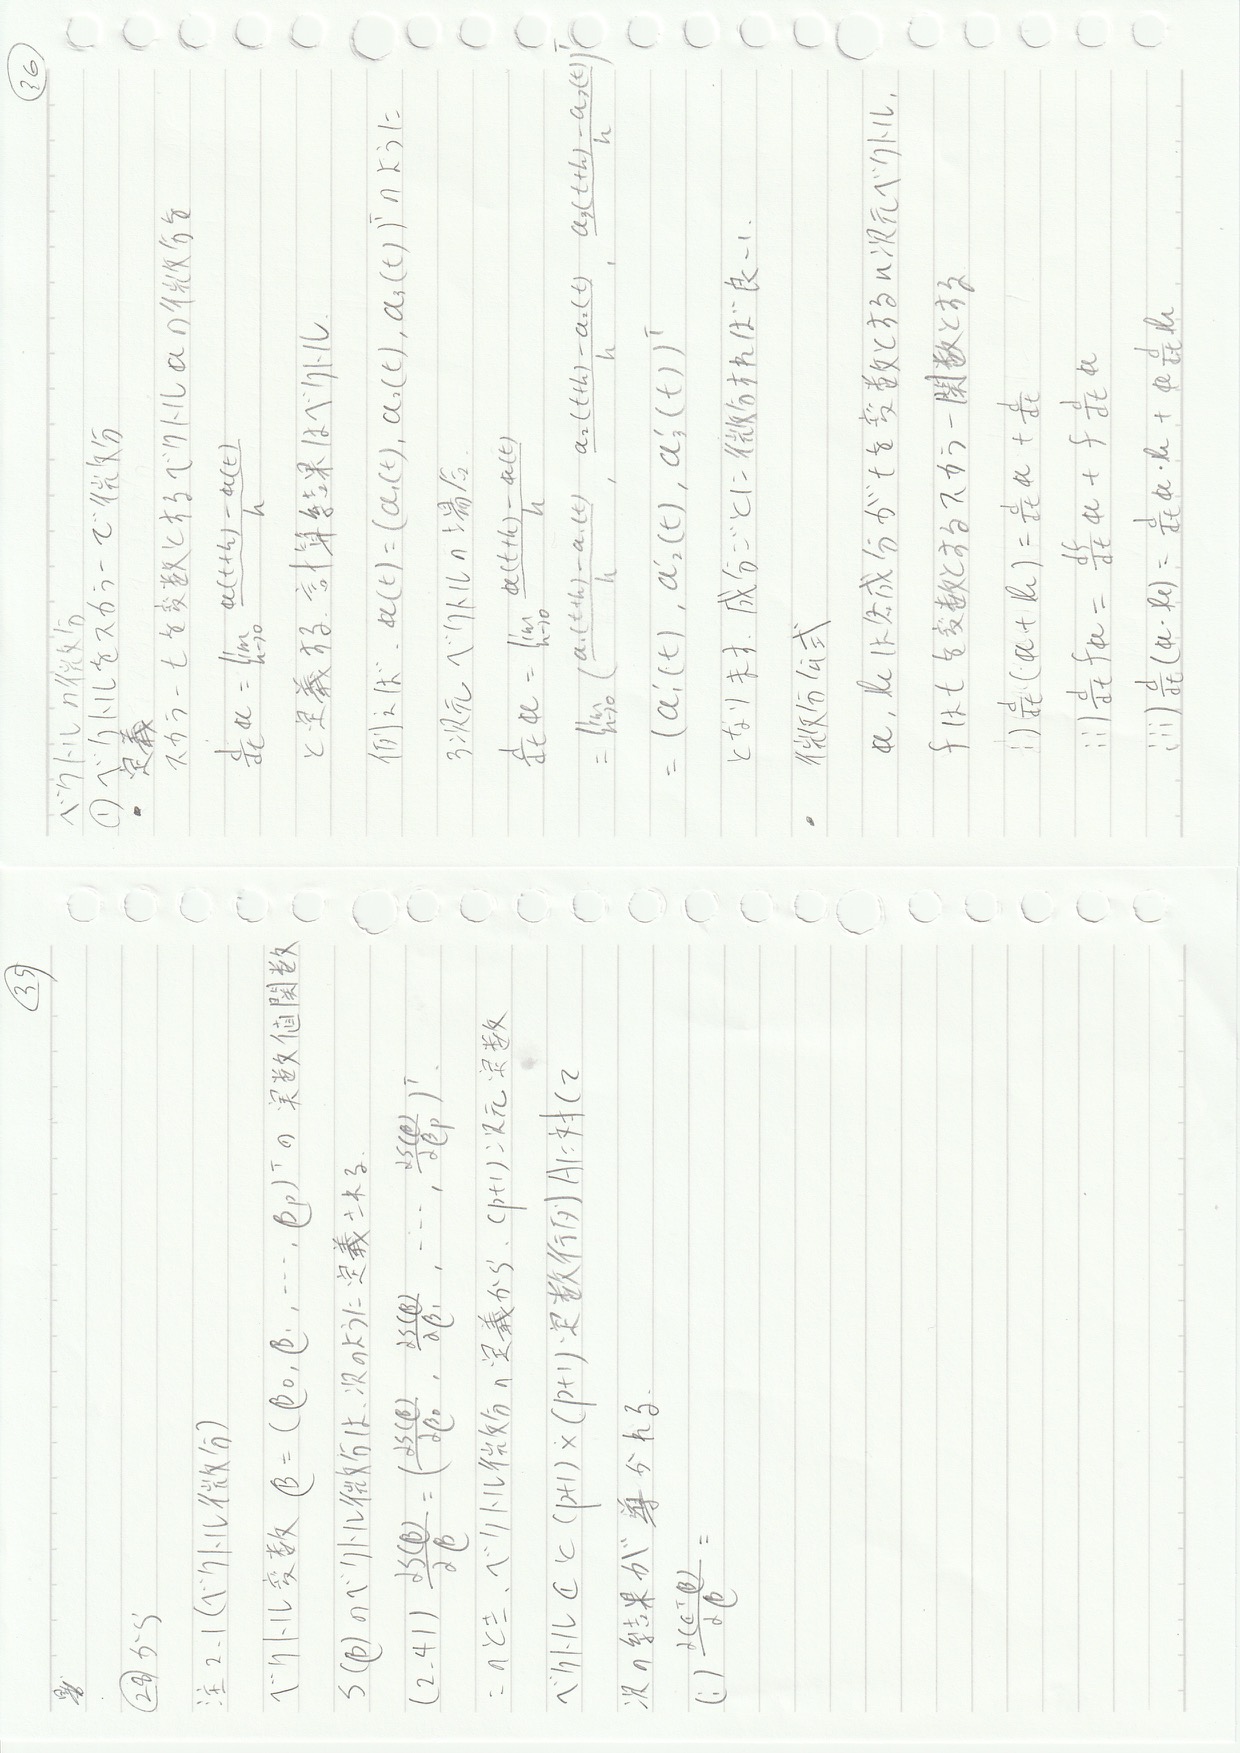 35
㉘から
注2.1(ベクトル微分)
ベクトル変数 β = (β₀, β₁, ‥‥, βp)ᵀの 実数値関数
S(β)のベクトル微分は、次のように定義される.
(2.41) ∂S(β)/∂β = (∂S(β)/∂β₀, ∂S(β)/∂β₁, ‥‥, ∂S(β)/∂βp)ᵀ.
このとき、ベクトル微分の定義から、(p+1)次元定数
ベクトル c と (p+1)×(p+1) 定数行列Aに対して
次の結果が導かれる.
(i) ∂(cᵀβ)/∂β =
36
ベクトルの微分
① ベクトルをスカラーで微分
・ 定義
スカラーtを変数とするベクトルaの微分を
d/dt a = lim h→0 a(t+h) − a(t)/h
と定義する. 計算結果はベクトル.
例えば、a(t) = (a₁(t), a₂(t), a₃(t))ᵀのように
3次元ベクトルの場合.
d/dt a = lim h→0 a(t+h) − a(t)/h
= lim h→0 (a₁(t+h) − a₁(t)/h, a₂(t+h) − a₂(t)/h, a₃(t+h) − a₃(t)/h)ᵀ
= (a₁'(t), a₂'(t), a₃'(t))ᵀ
となります. 成分ごとに微分すれば良い.
・ 微分公式
a, b は各成分がtを変数とするn次元ベクトル,
f はtを変数とするスカラー関数とする
i) d/dt (a + b) = d/dt a + d/dt
ii) d/dt fa = df/dt a + f d/dt a
iii) d/dt (a・b) = d/dt a・b + a d/dt b